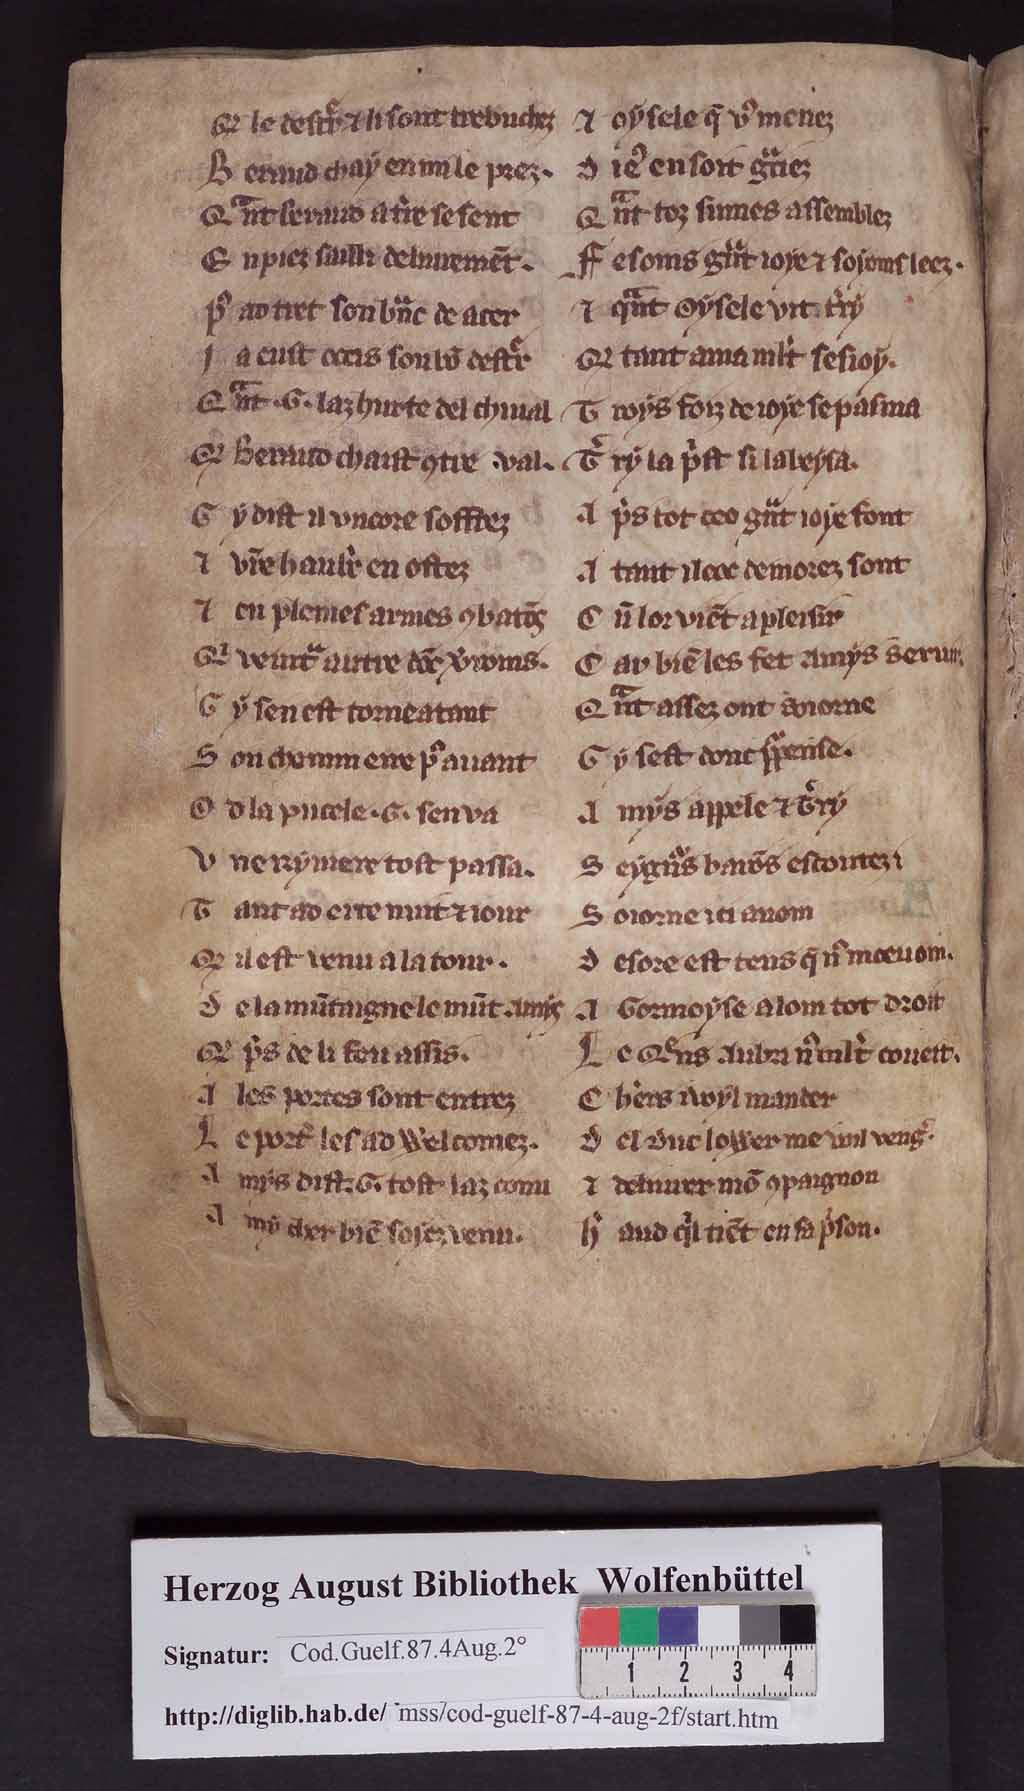 Q le destr̉ ⁊ li sont trebuchez
B eraud chaÿ en mi le prez.
Q ᵃnt beraud a tr̉e se sent
E n piez sailli deliuremēt.
P̉ ad tret son bᵃnc de acer
J a eust occis son bō destr̉
Q ᵃnt .G. laz hurte del chiual
Q Beraud chaist ꝯtre val.
G ÿ dist il vncore soffrez
⁊ vr̄e haub̉c en ostez
⁊ en plenies armes ꝯbatōs
G ÿ sen est torne atant
S on chemin erre p̉ auant
O d la pucele .G. sen va
V ne rÿuiere tost passa.
T ant ad erre nuit ⁊ iour
Q il est venu a la tour.
D e la mūtaigne le mūt Amÿs
Q p̉s de li feu assis.
A les portes sont entrez
L e port̉ les ad Welcomez.
A mÿs dist .G. tost laz conu
A mÿ cher biē soiez venu.
⁊ oÿsele q̄ vꝰ menez
D ieꝰ en soit gᵃciez
Q ᵃnt toz sumes assemblez
F esoms gᵃnt ioje ⁊ sojoms leez.
⁊ qᵃnt Oÿsele vit t̉rÿ
Q tant ama ml̉t sesioÿ.
T roÿs foiz de ioje se pasma
T̉ rÿ la p̉st si la beÿsa.
A p̉s tot ceo gᵃnt ioje font
A tant ilcoc demorez sont
C ū lor viēt a pleisir
C ar biē les fet Amÿs seruir,
Q ᵃnt assez ont soiorne
G ÿ sest donc p̉pense.
A mÿs appele ⁊ T̉rÿ
S eÿgn̉s barōs escoutez i
S oiorne ici auom
D esore est tens q̄ nꝰ moeuom.
A Gormoÿse alom tot droit
L e Qͤns Aubri nꝰ ml̉t coueit.
C hl̉ers i voÿl mander
D el duc loWer me uul veng̉.
⁊ deliurer mō ꝯpaignon
H̉ aud q̉l tiēt en sa p̉son.
Herzog August Bibliothek Wolfenbüttel
Signatur: Cod.Guelf.87.4Aug.2°
1 2 3 4
http://diglib.hab.de/ mss/cod-guelf-87-4-aug-2f/start.htm